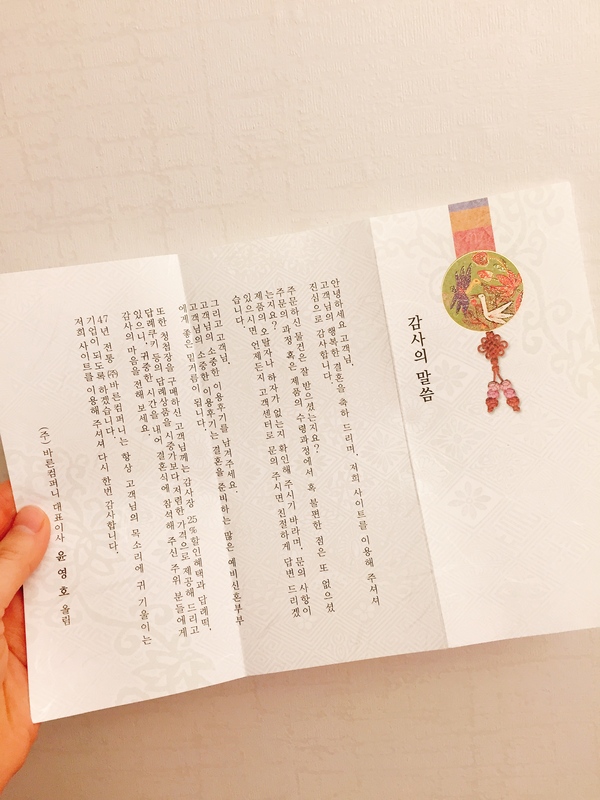 감사의 말씀
안녕하세요 고객님.
고객님의 행복한 결혼을 축하 드리며, 저희 사이트를 이용해 주셔서
진심으로 감사합니다.
주문하신 물건은 잘 받으셨는지요?
주문의 과정 혹은 제품의 수령과정에서 혹 불편한 점은 또 없으셨
는지요?
제품의 오탈자나 하자가 없는지 확인해 주시기 바라며, 문의 사항이
있으시면 언제든지 고객센터로 문의 주시면 친절하게 답변 드리겠
습니다.
그리고 고객님,
고객님의 소중한 이용후기를 남겨주세요.
고객님의 소중한 이용후기는 결혼을 준비하는 많은 예비신혼부부
에게 좋은 밑거름이 됩니다.
또한 청첩장을 구매하신 고객님께는 감사장 25%할인혜택과 답례떡,
답례쿠키 등의 답례상품을 시중가보다 저렴한 가격으로 제공해 드리고
있으니, 귀중한 시간을 내어 결혼식에 참석해 주신 주위 분들에게
감사의 마음을 전해 보세요.
47년 전통 ㈜바른컴퍼니는 항상 고객님의 목소리에 귀 기울이는
기업이 되도록 하겠습니다.
저희 사이트를 이용해 주셔서 다시 한번 감사합니다.
(주) 바른컴퍼니 대표이사 윤영호 올림